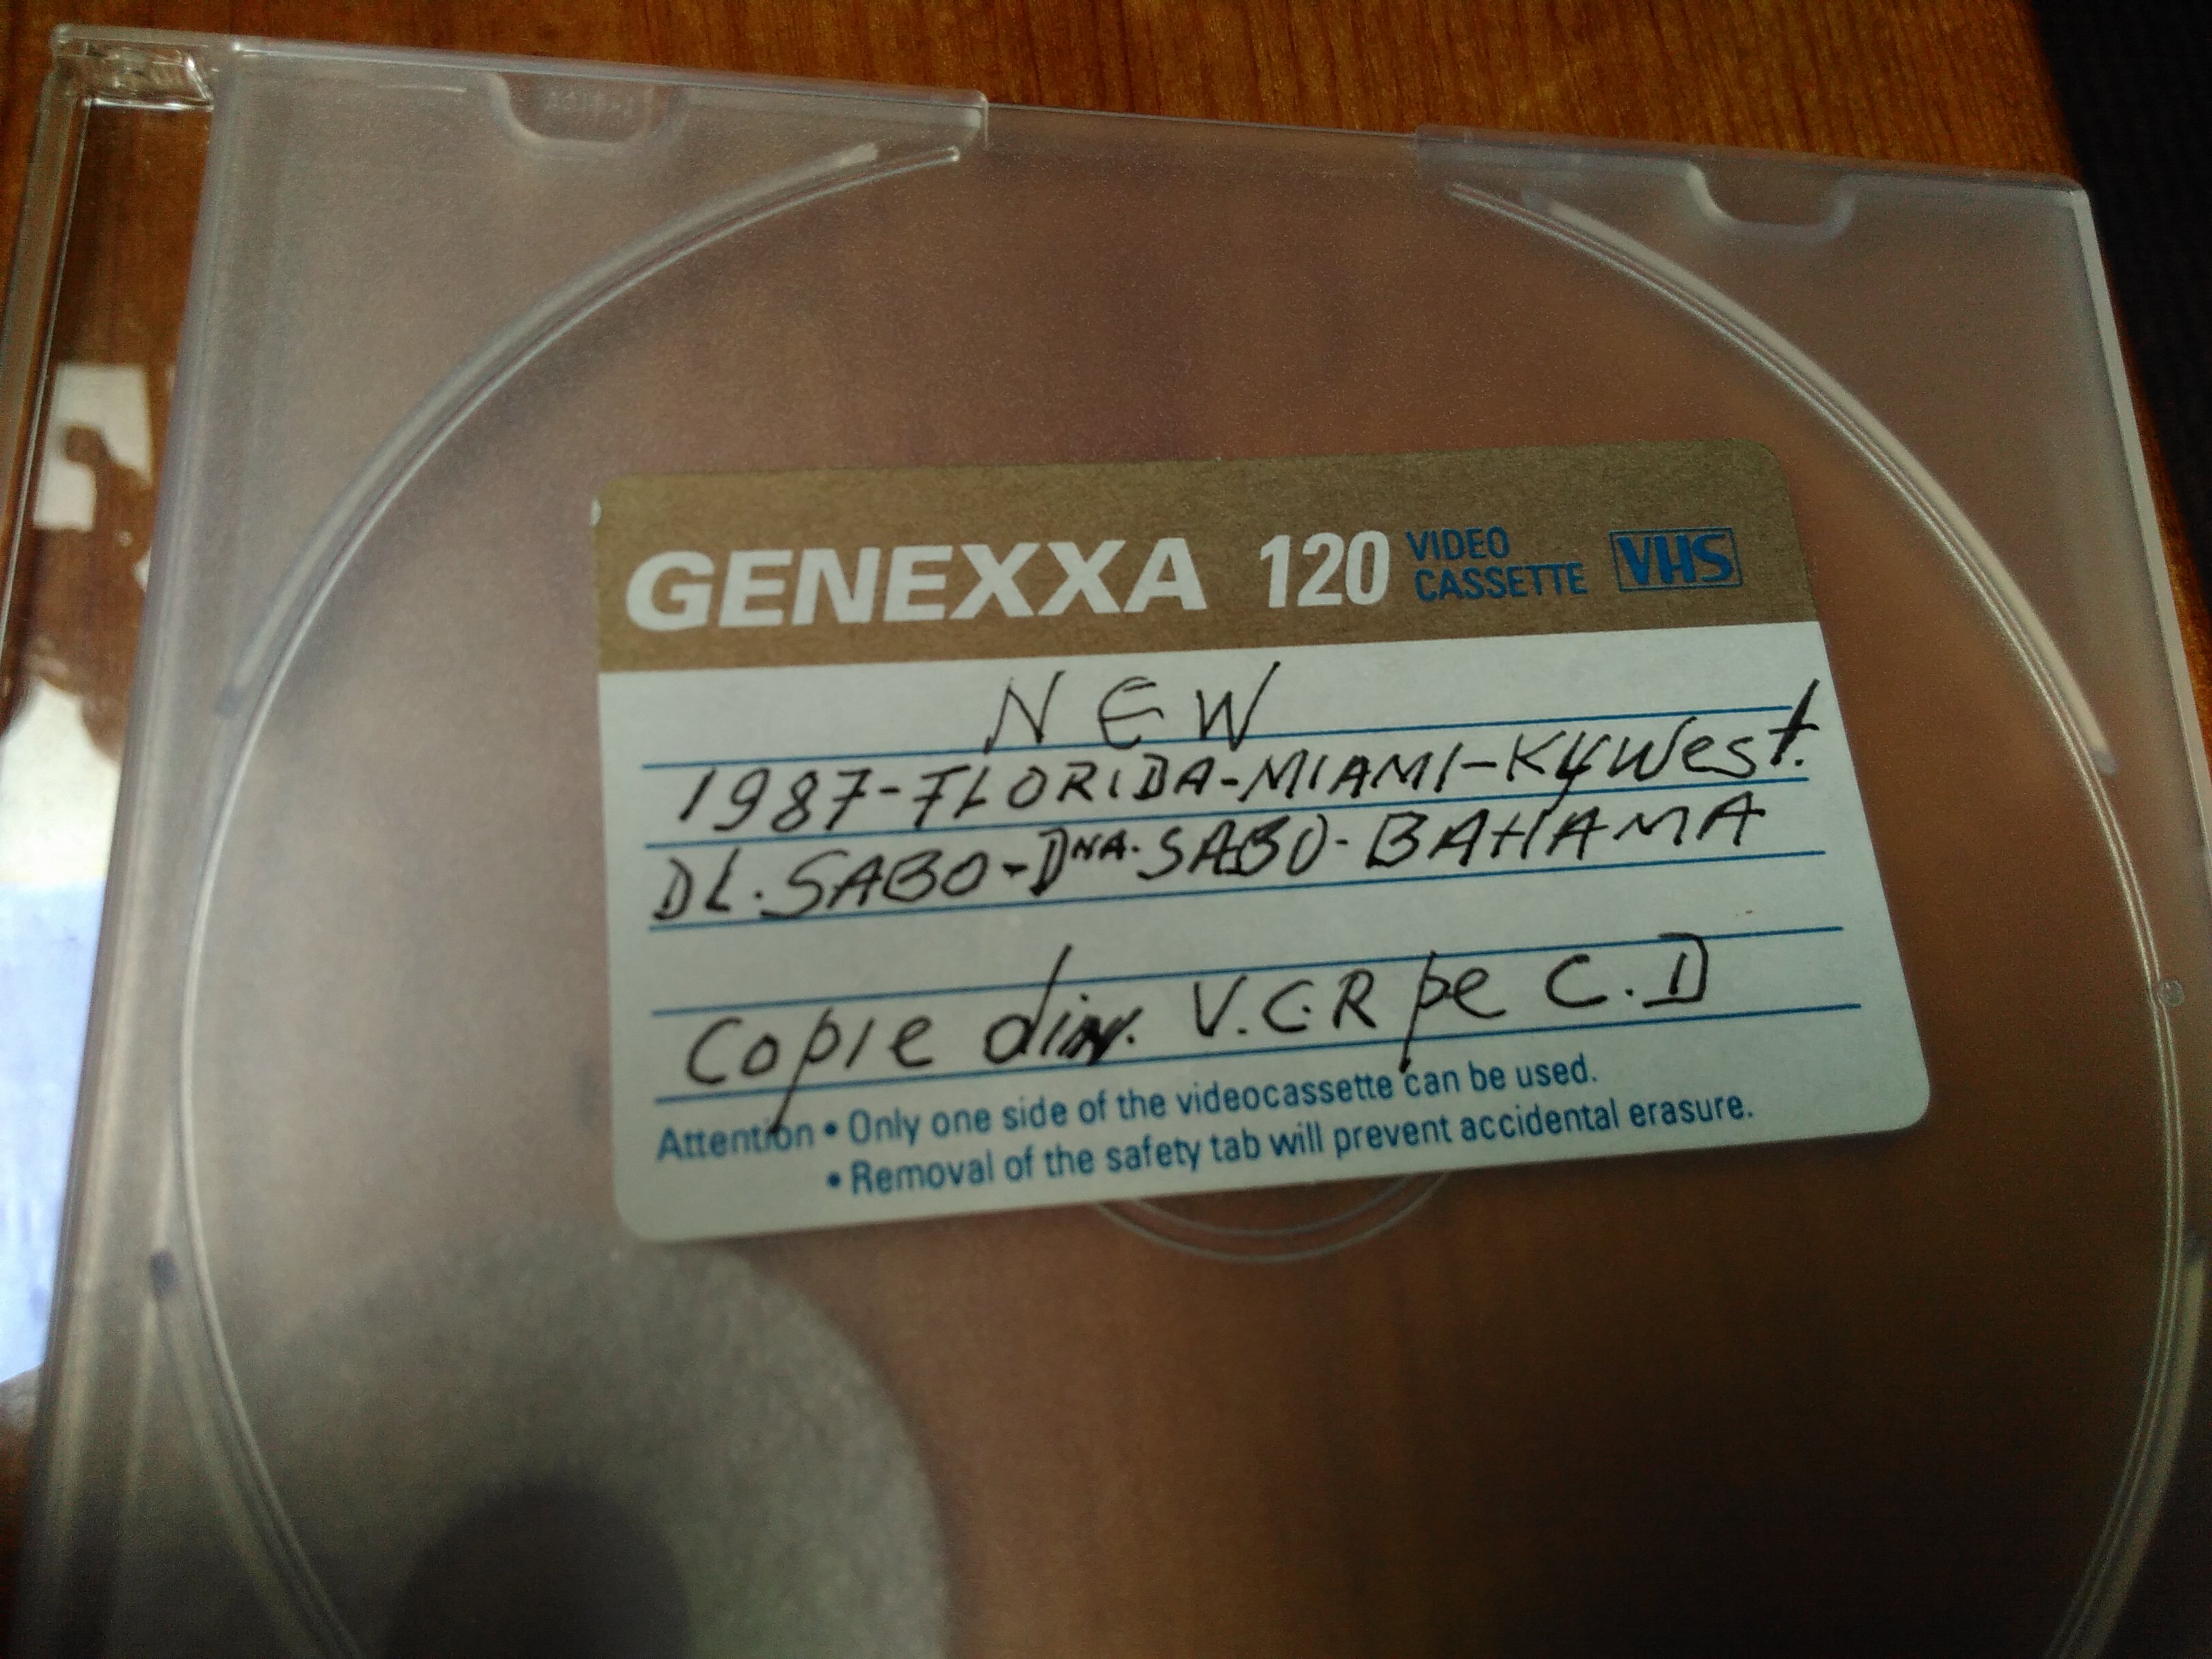 GENEXXA 120 VIDEO CASSETTE VHS
NEW
1987-FLORIDA-MIAMI-KYWest.
DL.SABO-DNA.SABO-BAHAMA
Copie din. V.C.R pe C.D
Attention • Only one side of the videocassette can be used.
• Removal of the safety tab will prevent accidental erasure.